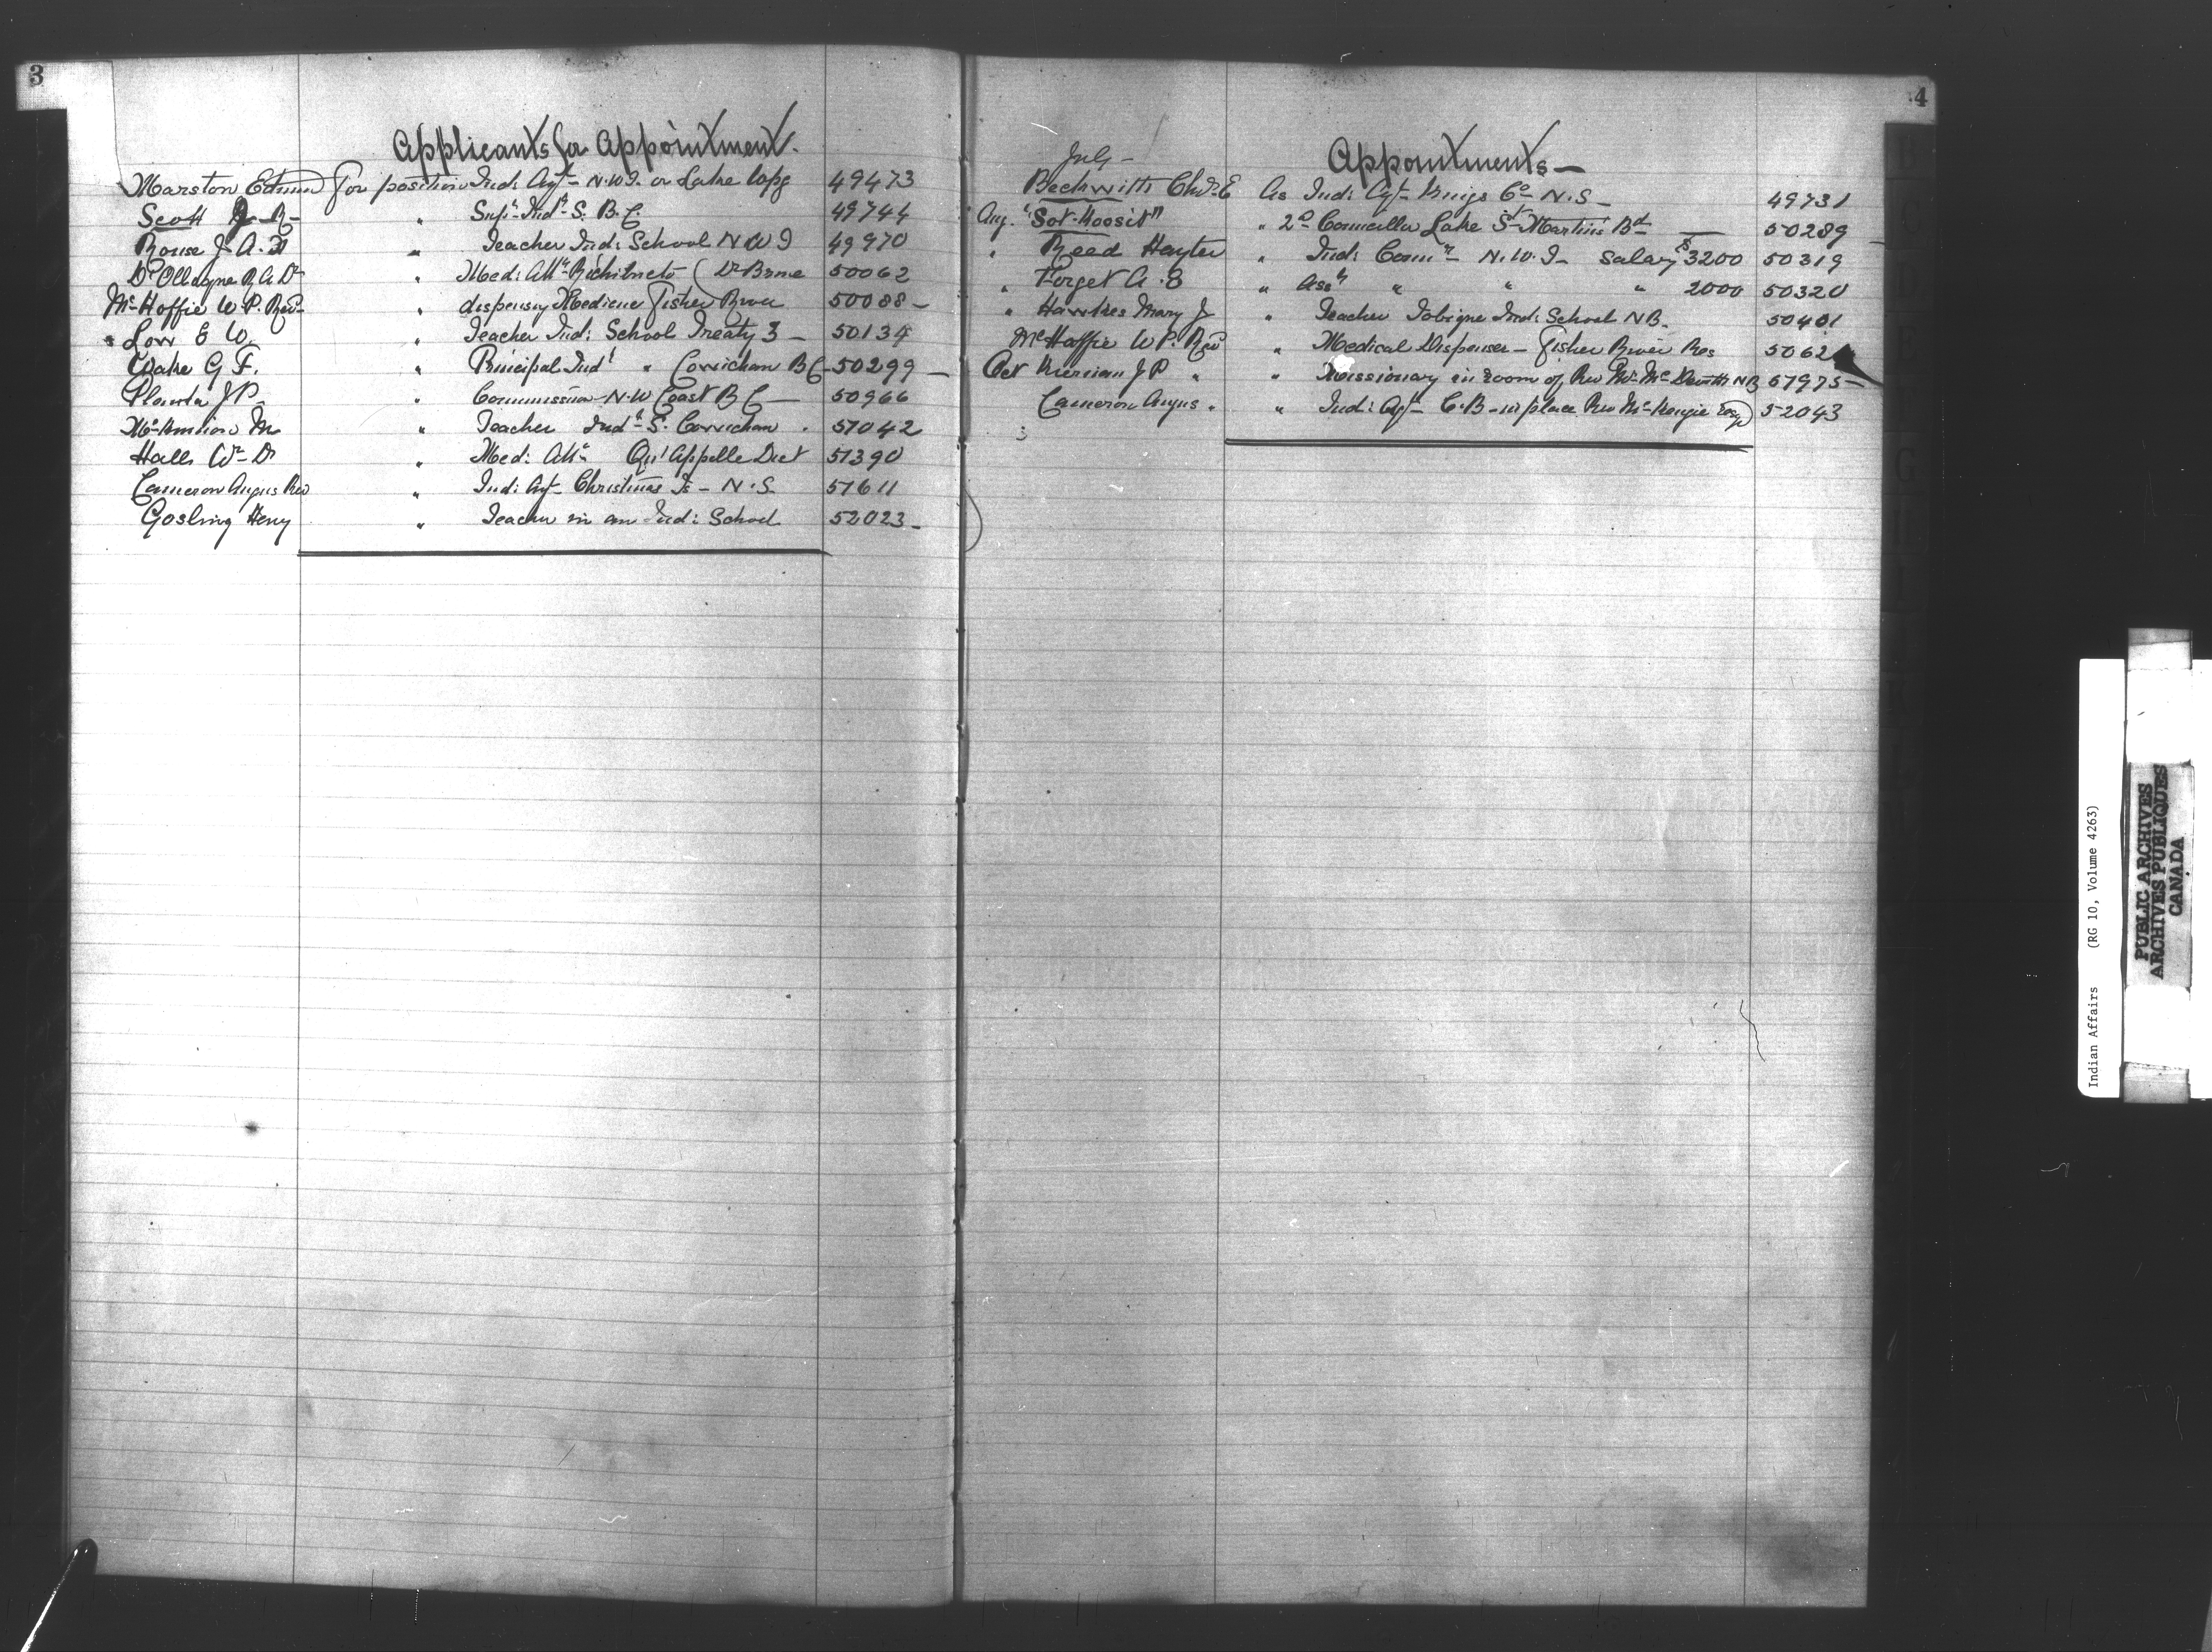 3
Applicants for Appointment.
Marston Edmund For position Ind: Agt N.W.T. or Lake Wpg 49473
Scott J. R " Supt Indl S. B.C. 49744
Rouse J. A. " Teacher Ind: School N W T 49970
R A Dr " Med: Attn (Dr Bome 50062
Mc Haffie W. P. Revd " dispensing Medicine Fisher River 50088
" Low E W. " Teacher Ind: School Treaty 3 50134
Drake G F. " Principal Indl " Cowichan B C 50299
Planta J P. " Commission N. W Coast B C 50966
Mc Kinnon M " Teacher Indl S. Cowichan . 51042
Halls Wm Dr " Med: Attn Qu'Appelle Dist 51390
Cameron Angus Rev " Ind: Agt Christmas Is - N. S. 51611
Gosling Heny " Teacher in an Ind: School 52023
4
Appointments
July
Beckwith Chas E As Ind: Agt Kings Co N. S 49731
Aug. "Sot-Koosit" " 2d Councillor Lake St Martins Bd 50289
" Reed Hayter " Ind: Commr N. W. T Salary $3200 50319
" Forget A. E " Asst " " " 2000 50320
" Hawkes Mary J " Teacher Tobique Ind: School N B. 50401
Mc Haffie W P. Revd " Medical Dispenser - Fisher River Res 5062
Oct Kiernan J P " " Missionary in room of Rev Mr Mc Devitt NB 51975
Cameron Angus . " Ind: Agt C. B - in place Rev McKenzie resgd 52043
Indian Affairs (RG 10, Volume 4263)
PUBLIC ARCHIVES
ARCHIVES PUBLIQUES
CANADA